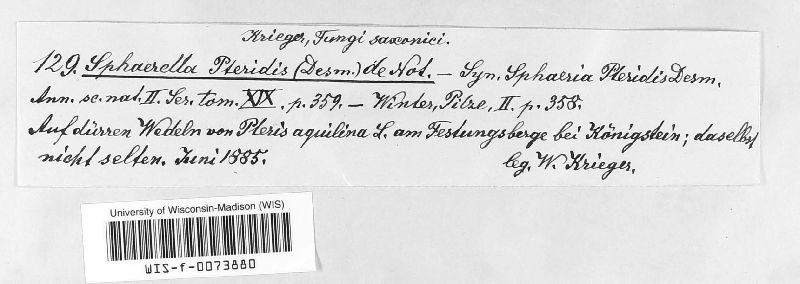 Krieger, Fungi saxonici.
129. Sphaerella Pteridis (Desm.) de Not. — Syn. Sphaeria Pteridis Desm.
Ann. sc. nat. II. Ser. tom. XIX, p. 359. — Winter, Pilze, II. p. 358.
Auf dürren Wedeln von Pteris aquilina L. am Festungsberge bei Königstein; daselbst
nicht selten. Juni 1885. leg. W. Krieger.
University of Wisconsin-Madison (WIS)
WIS-f-0073880